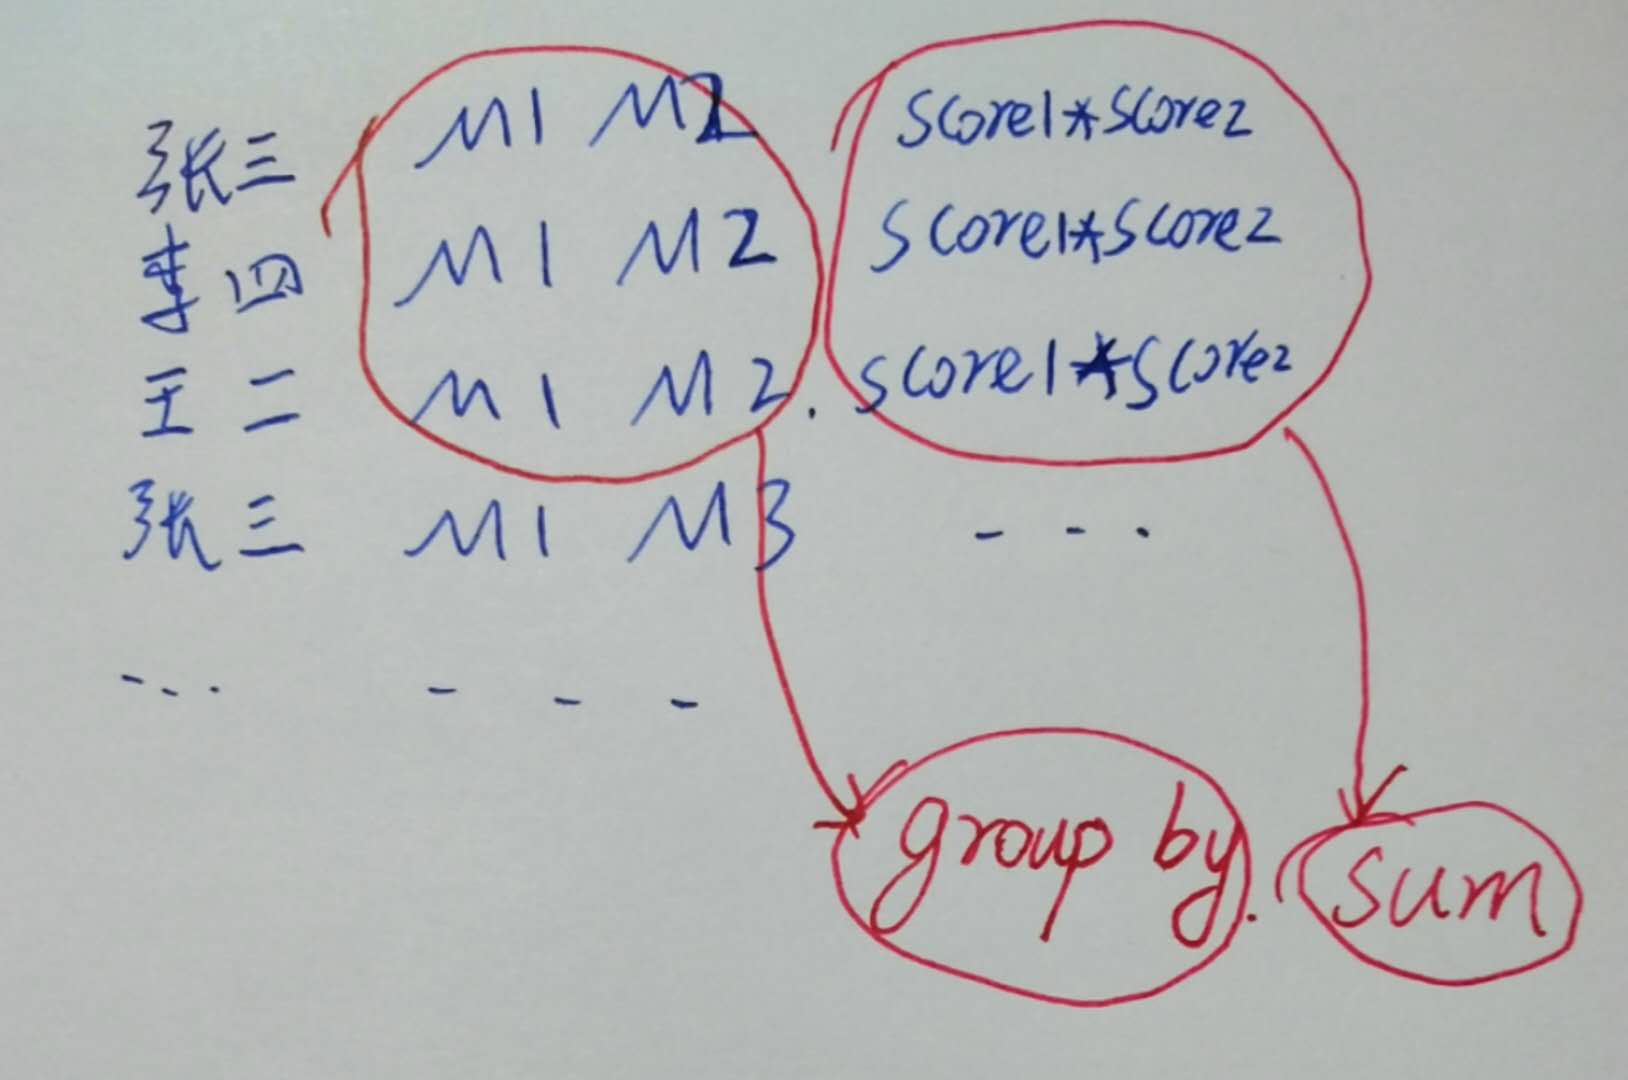 张三 M1 M2 score1*score2
李四 M1 M2 score1*score2
王二 M1 M2. score1*score2
张三 M1 M3 - - .
-.. - - -
group by. sum